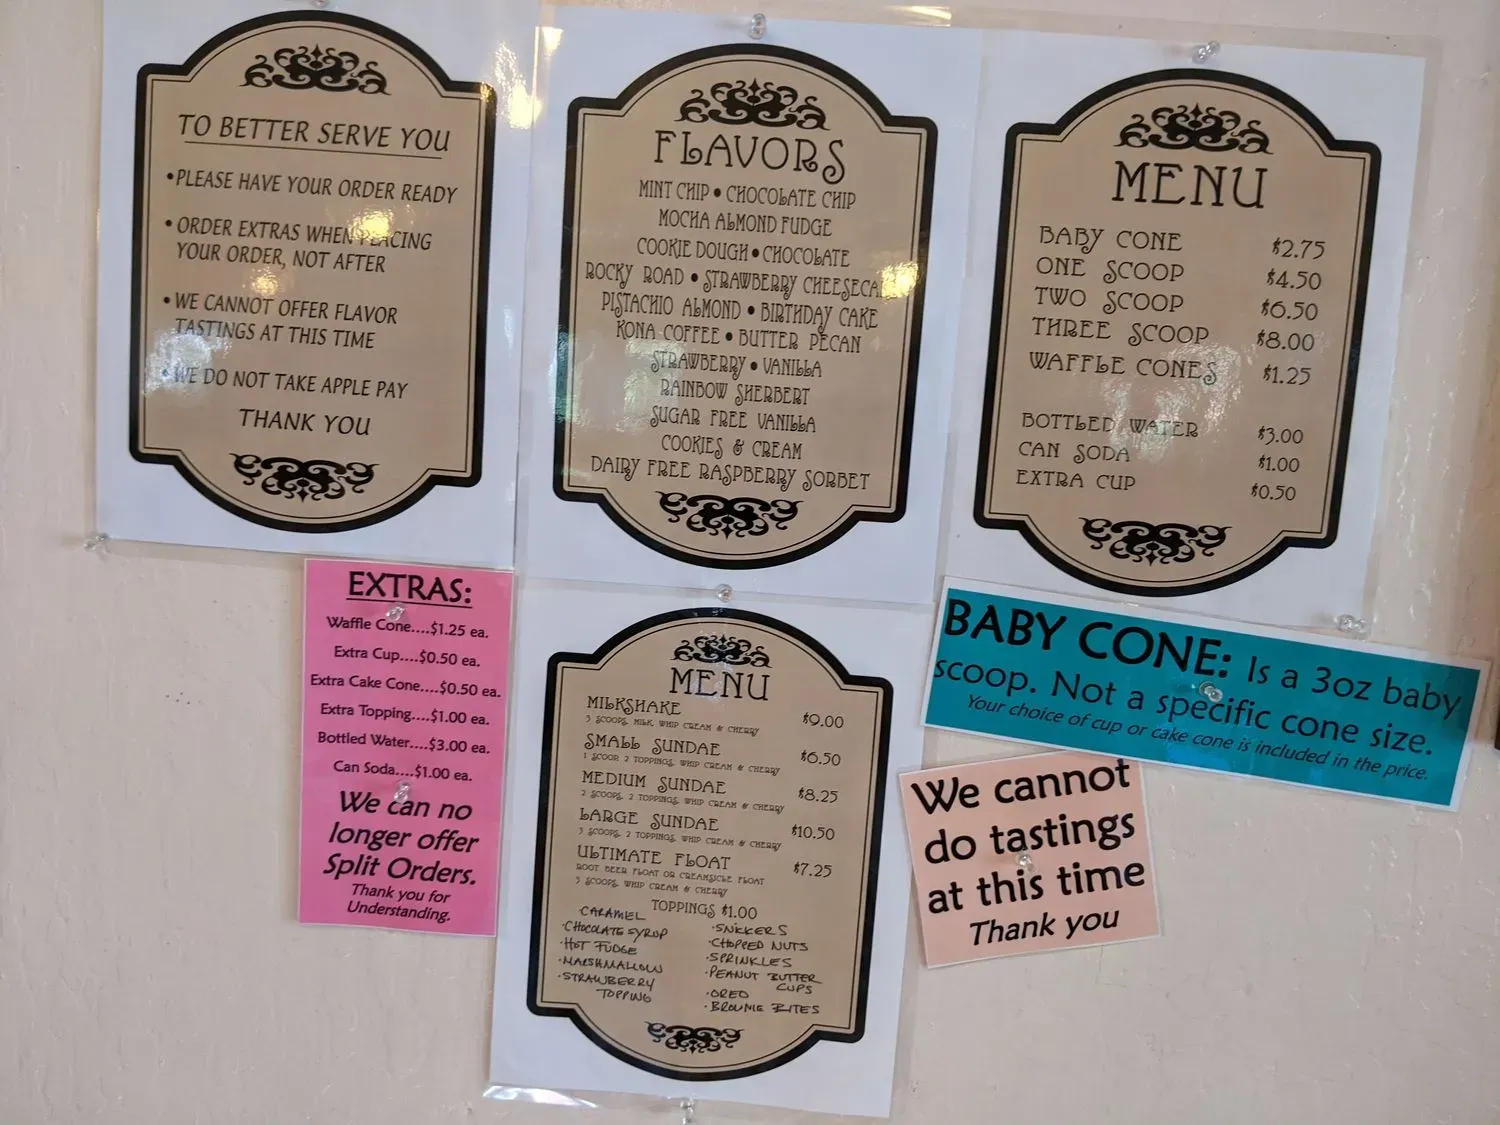 TO BETTER SERVE YOU
•PLEASE HAVE YOUR ORDER READY
•ORDER EXTRAS WHEN PLACING
YOUR ORDER, NOT AFTER
•WE CANNOT OFFER FLAVOR
TASTINGS AT THIS TIME
•WE DO NOT TAKE APPLE PAY
THANK YOU
FLAVORS
MINT CHIP • CHOCOLATE CHIP
MOCHA ALMOND FUDGE
COOKIE DOUGH • CHOCOLATE
ROCKY ROAD • STRAWBERRY CHEESECAKE
PISTACHIO ALMOND • BIRTHDAY CAKE
KONA COFFEE • BUTTER PECAN
STRAWBERRY • VANILLA
RAINBOW SHERBERT
SUGAR FREE VANILLA
COOKIES & CREAM
DAIRY FREE RASPBERRY SORBET
MENU
BABY CONE $2.75
ONE SCOOP $4.50
TWO SCOOP $6.50
THREE SCOOP $8.00
WAFFLE CONES $1.25
BOTTLED WATER $3.00
CAN SODA $1.00
EXTRA CUP $0.50
EXTRAS:
Waffle Cone....$1.25 ea.
Extra Cup....$0.50 ea.
Extra Cake Cone....$0.50 ea.
Extra Topping....$1.00 ea.
Bottled Water....$3.00 ea.
Can Soda....$1.00 ea.
We can no
longer offer
Split Orders.
Thank you for
Understanding.
MENU
MILKSHAKE $9.00
3 SCOOPS, MILK, WHIP CREAM & CHERRY
SMALL SUNDAE $6.50
1 SCOOP, 2 TOPPINGS, WHIP CREAM & CHERRY
MEDIUM SUNDAE $8.25
2 SCOOPS, 2 TOPPINGS, WHIP CREAM & CHERRY
LARGE SUNDAE $10.50
3 SCOOPS, 2 TOPPINGS, WHIP CREAM & CHERRY
ULTIMATE FLOAT $7.25
ROOT BEER FLOAT OR CREAMSICLE FLOAT
3 SCOOPS, WHIP CREAM & CHERRY
TOPPINGS $1.00
CARAMEL
·CHOCOLATE SYRUP
·HOT FUDGE
·MARSHMALLOW
·STRAWBERRY
TOPPING
·SNICKERS
·CHOPPED NUTS
·SPRINKLES
·PEANUT BUTTER
CUPS
·OREO
·BROWNIE BITES
BABY CONE: Is a 3oz baby
scoop. Not a specific cone size.
Your choice of cup or cake cone is included in the price.
We cannot
do tastings
at this time
Thank you